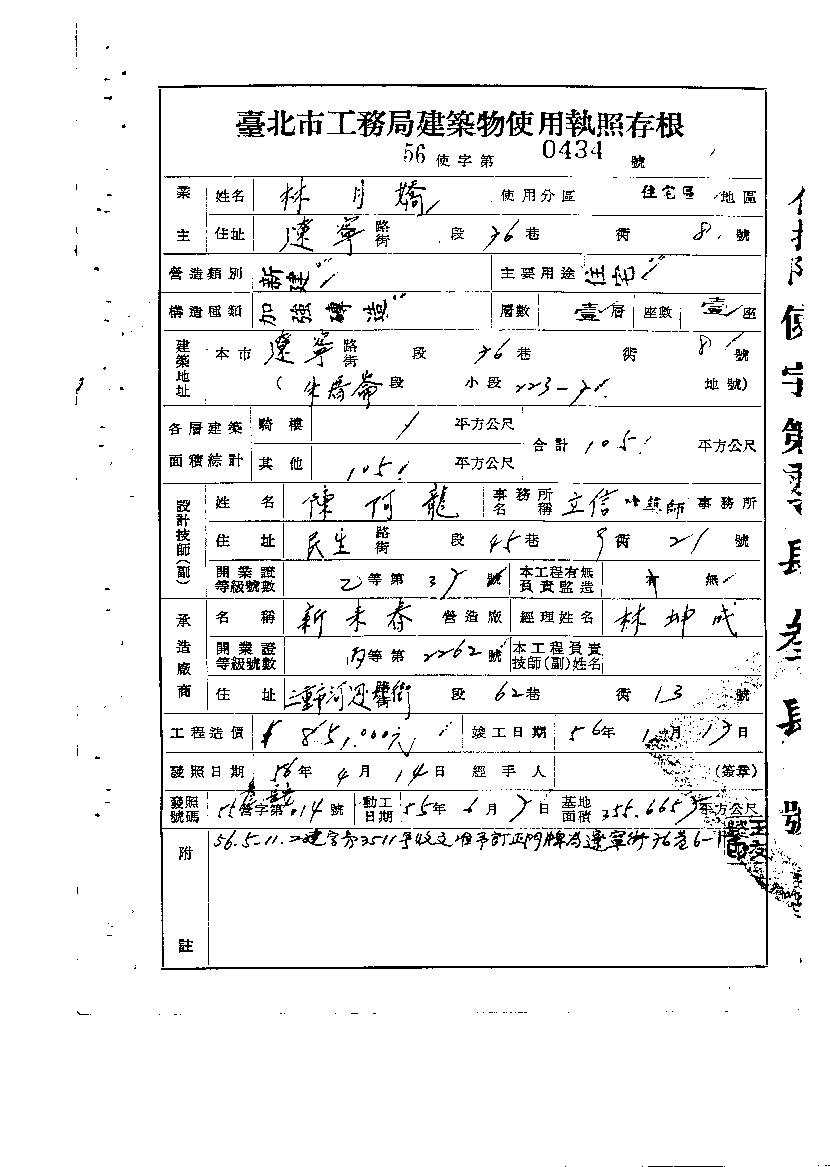 臺北市工務局建築物使用執照存根
56 使字第 0434 號
業主 姓名 林月嬌 使用分區 住宅區 地區
住址 遼寧 路街 段 76 巷 衖 8 號
營造類別 新建 主要用途 住宅
構造種類 加強磚造 層數 壹層 座數 壹座
建築地址 本市 遼寧 路街 段 76 巷 衖 8 號
( 朱厝崙 段 小段 223-71 地號)
各層建築面積綜計 騎樓 平方公尺 合計 105 平方公尺
其他 105 平方公尺
設計技師(副) 姓名 陳阿龍 事務所名稱 立信建築師 事務所
住址 民生 路街 段 45 巷 衖 21 號
開業證等級號數 乙等第 37 號 本工程有無負責監造 有 無
承造廠商 名稱 新未春 營造廠 經理姓名 林坤成
開業證等級號數 丙等第 2262 號 本工程負責技師(副)姓名
住址 三重市河邊 街 段 62 巷 衖 13 號
工程造價 $ 851,000元 竣工日期 56年 1月 17日
發照日期 56年 4月 14日 經手人 (簽章)
發照號碼 55 營字第 014 號 動工日期 55年 6月 7日 基地面積 355.665 平方公尺
附註 56.5.11.
使字第零肆叁肆號